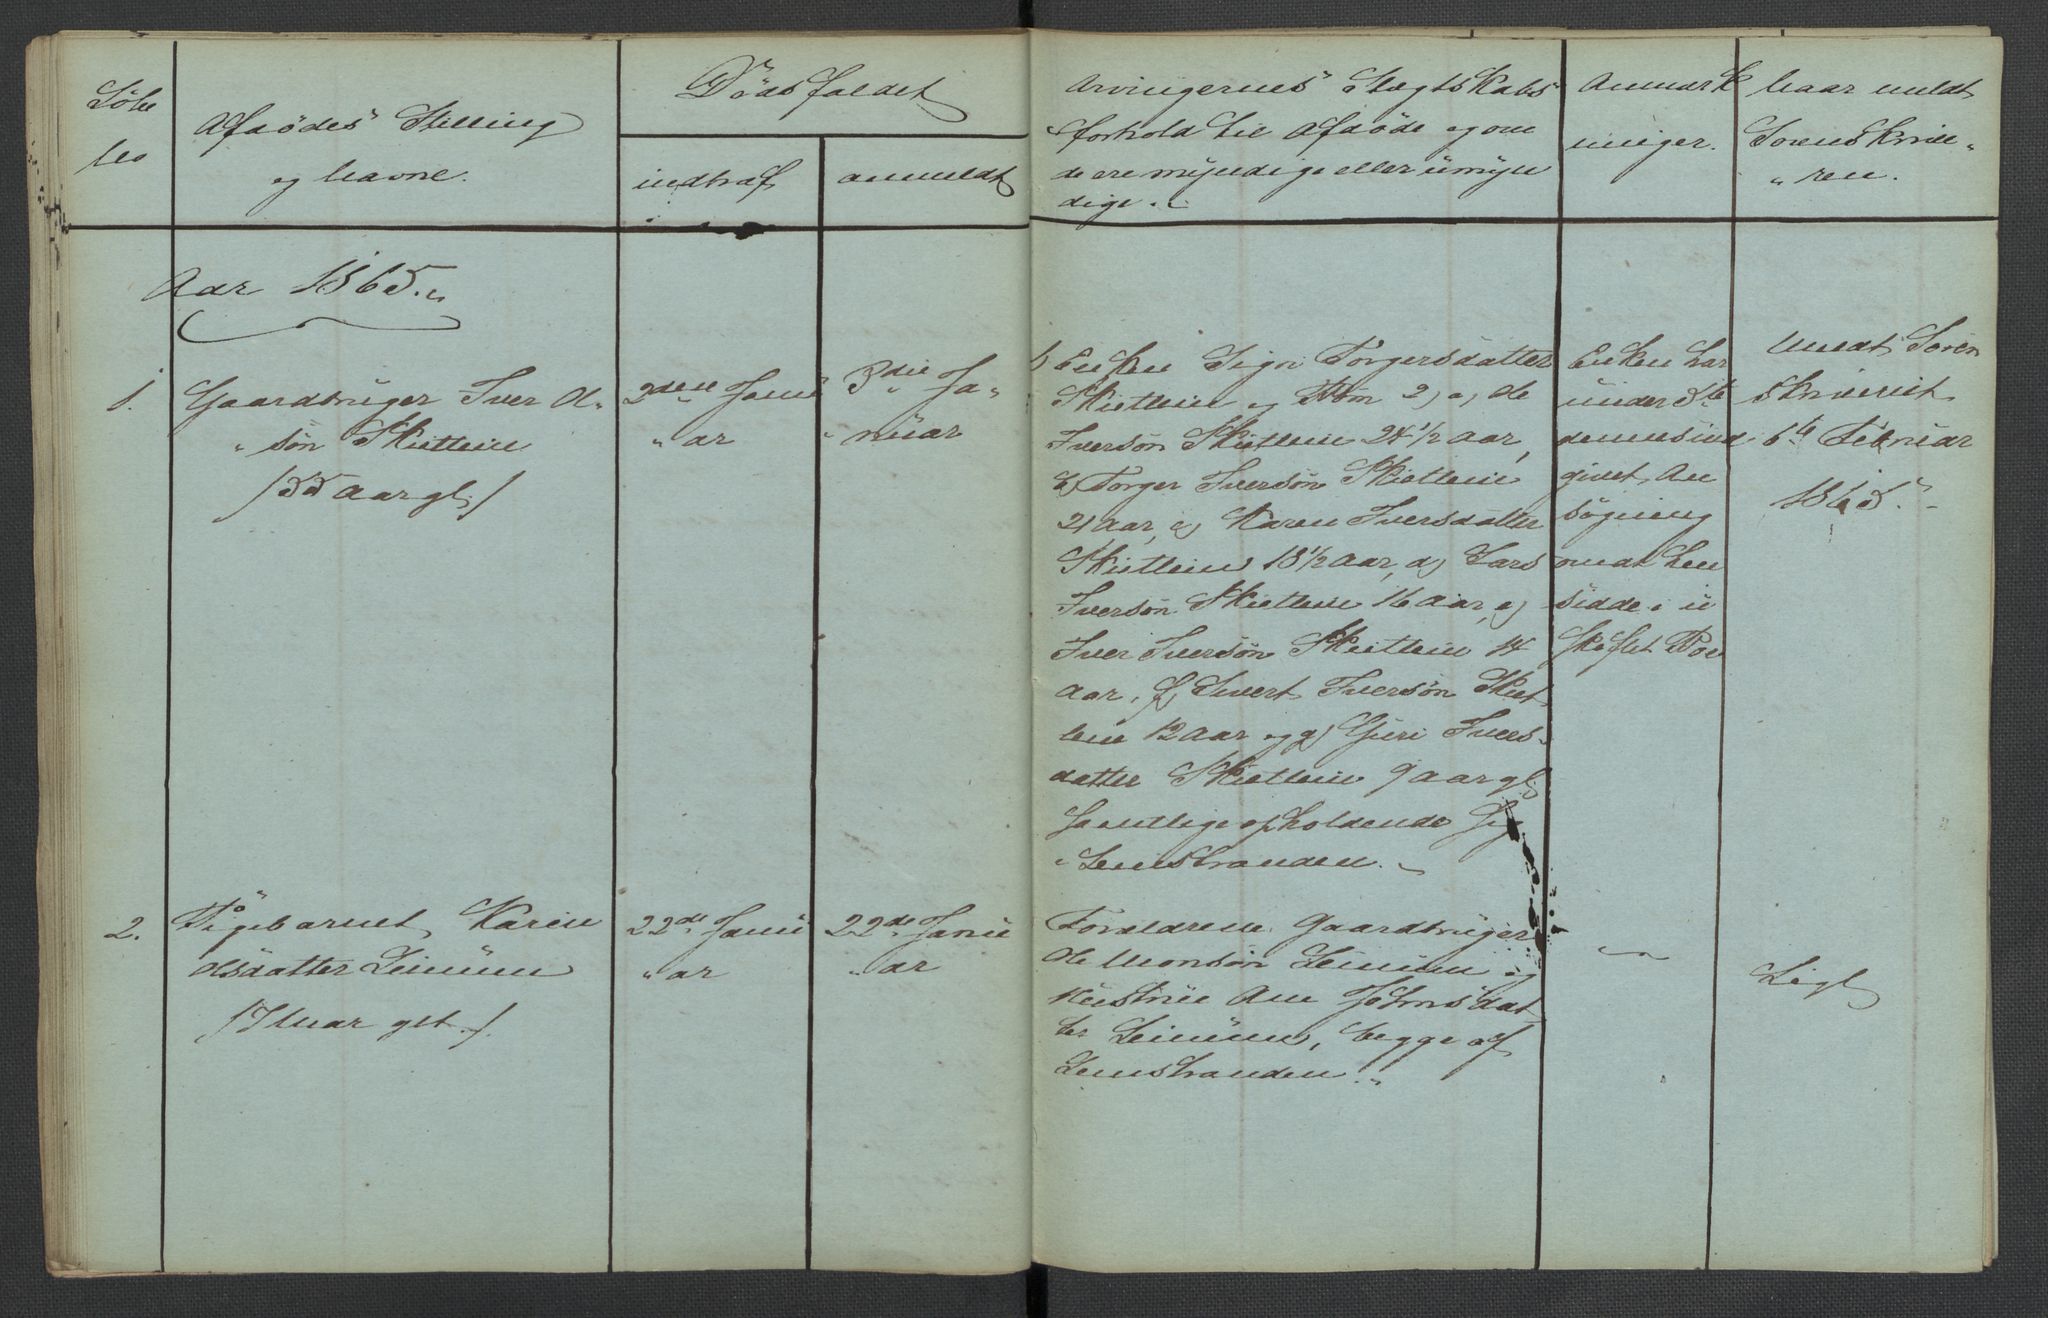 Löbe
No
Afdödes Stilling
og Navne.
Dödsfaldet
indtraf
anmeldt
Arvingernes Slegtskabs
forhold til Afdöde og om
de ere myndige eller umyn
dige.
Anmærk
ninger.
Naar meldt
Sorenskrive
ren.
Aar 1865.
1.
Gaardbruger Iver Ol
sön Skietlein
/55 Aar gl/
2den Janu
ar
3die Ja
nuar
1, Enken Sigri Torgersdatter
Skietlein og Börn 2) a, Ole
Iversön Skietlein 24 1/2 Aar,
b, Torger Iversön Skietlein
21 Aar, c, Karen Iversdatter
Skietlein 18 1/2 Aar, d, Lars
Iversön Skietlein 16 Aar, e,
Iver Iversön Skietlein 14
Aar, f, Sivert Iversön Skiet
lein 12 Aar og g, Guri Ivers
datter Skietlein 9 Aar gl,
samtlige opholdende sig
Leinstranden.
Enken har
under 3de
dennes ind
givet An
sögning
om at hen
sidde i u
skiftet Boe
Meldt Soren
skriveriet
6te Februar
1865.
2.
Pigebarnet Karen
Olsdatter Leinum
/7 Maar glt./
22de Janu
ar
22de Janu
ar
Foreldrene Gaardbruger
Ole Monsön Leinum og
Hustrue Ane Johnsdat
ter Leinum, begge af
Leinstranden.
Ligl